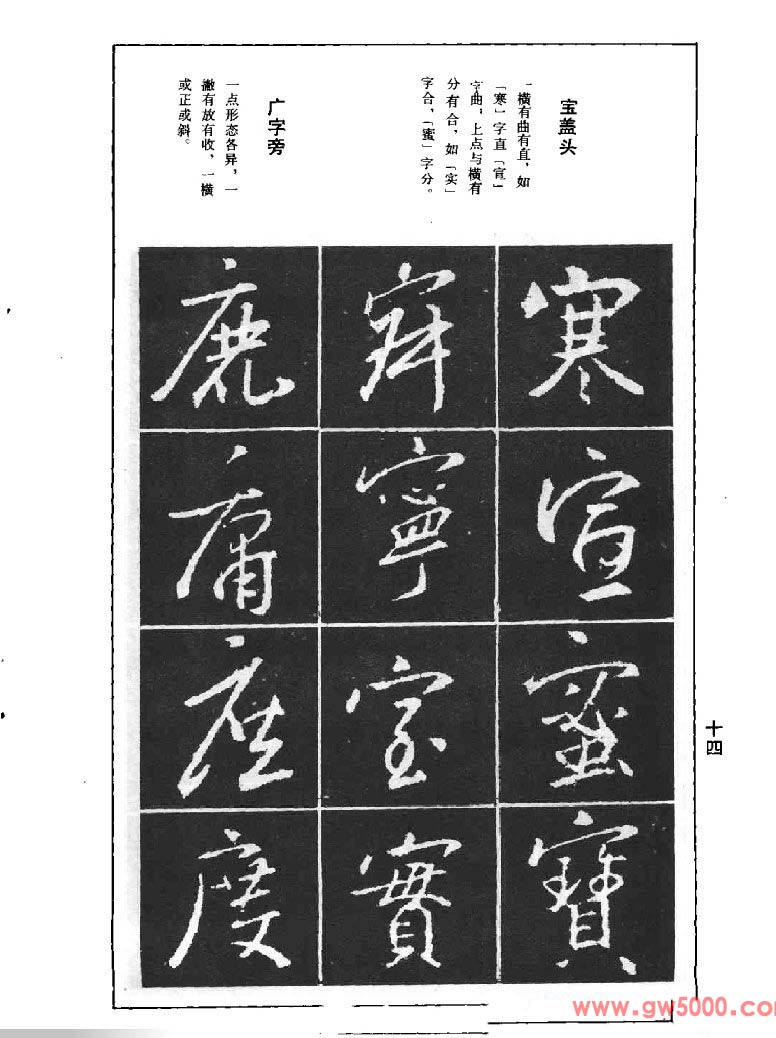 宝盖头
一横有曲有直，如
「寒」字直「宣」
字曲；上点与横有
分有合，如「实」
字合，「蜜」字分。
广字旁
一点形态各异，一
撇有放有收，一横
或正或斜。
寒
宣
蜜
寶
寧
室
實
鹿
庸
座
度
十四
www.gw5000.com